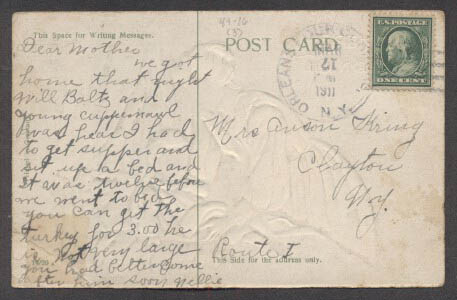 49-16
(3)
This Space for Writing Messages.
POST CARD
Dear Mother
we got
home that night
Will Baltz and
young
was hear I had
to get supper and
set up a bed and
it was twelve before
we went to bed
you can get the
turkey for 3.00 he
is not very large
you had better come
after him soon Nellie
ORLEANS
17
1911
N.Y.
U.S. POSTAGE
ONE CENT
Mrs Anson
Clayton
N.y.
Route I
This Side for the address only.